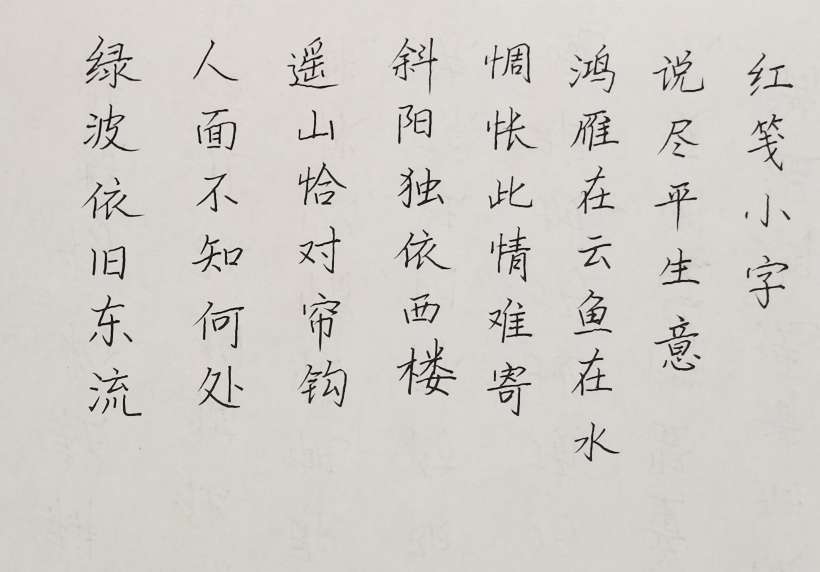 红笺小字
说尽平生意
鸿雁在云鱼在水
惆怅此情难寄
斜阳独依西楼
遥山恰对帘钩
人面不知何处
绿波依旧东流